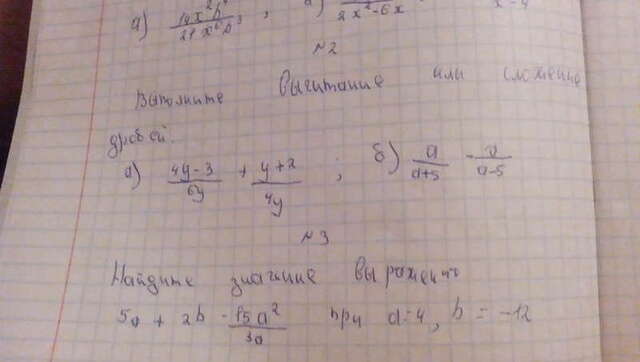 а) 14x²b⁴/21x⁶b³ ; 2x²-6x x-4
№2
Выполните вычитание или сложение
дробей.
а) 4y-3/6y + y+2/4y ; б) a/a+5 - a/a-5
№3
Найдите значение выражения
5a + 2b - 15a²/3a при a=4, b = -12